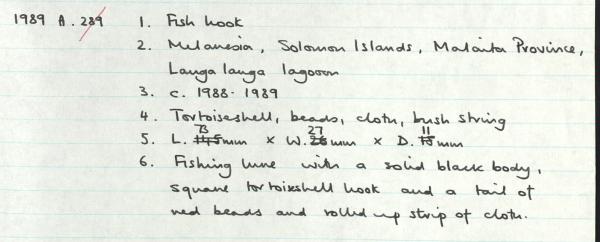 1989 A. 289 1. Fish hook
2. Melanesia, Solomon Islands, Malaita Province,
Langa langa lagoon
3. c. 1988-1989
4. Tortoiseshell, beads, cloth, bush string
5. L. 73mm x W. 27mm x D. 11mm
6. Fishing lure with a solid black body,
square tortoiseshell hook and a tail of
red beads and rolled up strip of cloth.